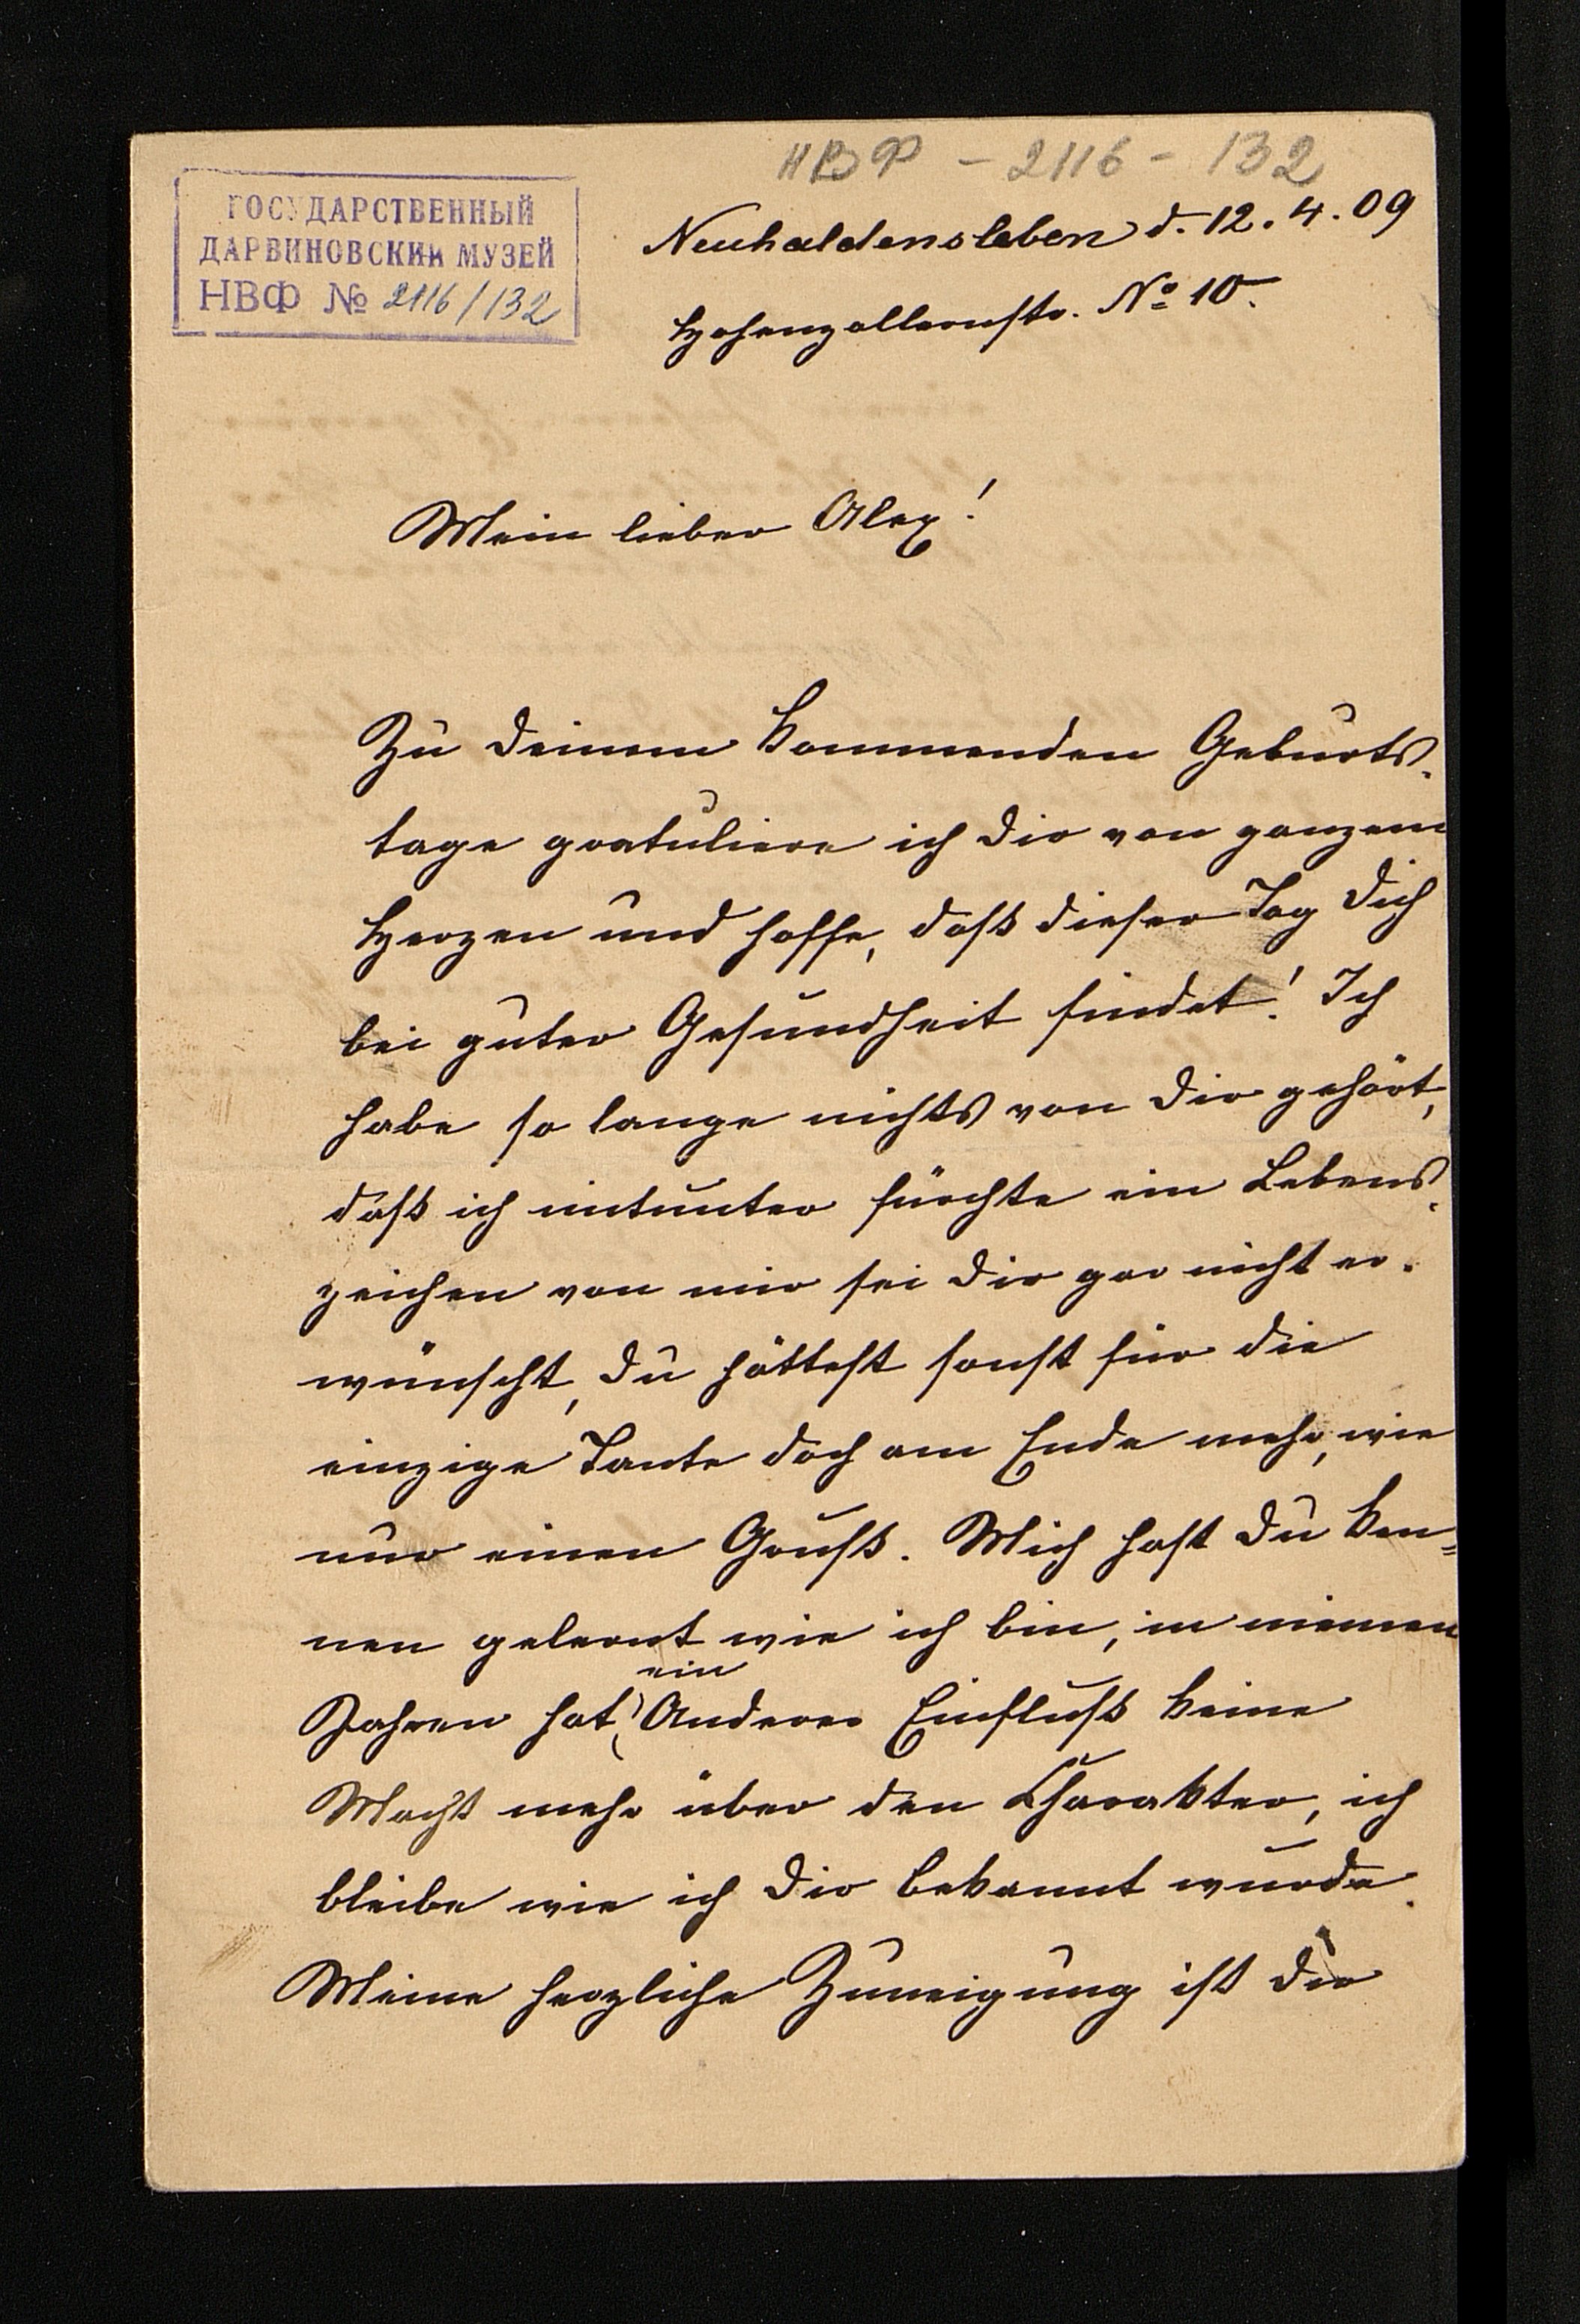 НВФ - 2116 - 132
ГОСУДАРСТВЕННЫЙ
ДАРВИНОВСКИЙ МУЗЕЙ
НВФ № 2116/132
Neuhaldensleben d. 12. 4. 09
Hohenzollernstr. No 10.
Mein lieber Alex!
Zu Deinem kommenden Geburts-
tage gratuliere ich Dir von ganzem
Herzen und hoffe, daß dieser Tag Dich
bei guter Gesundheit findet! Ich
habe so lange nichts von Dir gehört,
daß ich mitunter fürchte ein Lebens-
zeichen von mir sei Dir gar nicht er-
wünscht, Du hättest sonst für die
einzige Tante doch am Ende mehr, wie
nur einen Gruß. Mich hast Du ken-
nen gelernt wie ich bin, in meinen
ein
Jahren hat Anderer Einfluß keine
Macht mehr über den Charakter, ich
bleibe wie ich Dir bekannt wurde.
Meine herzliche Zuneigung ist Dir